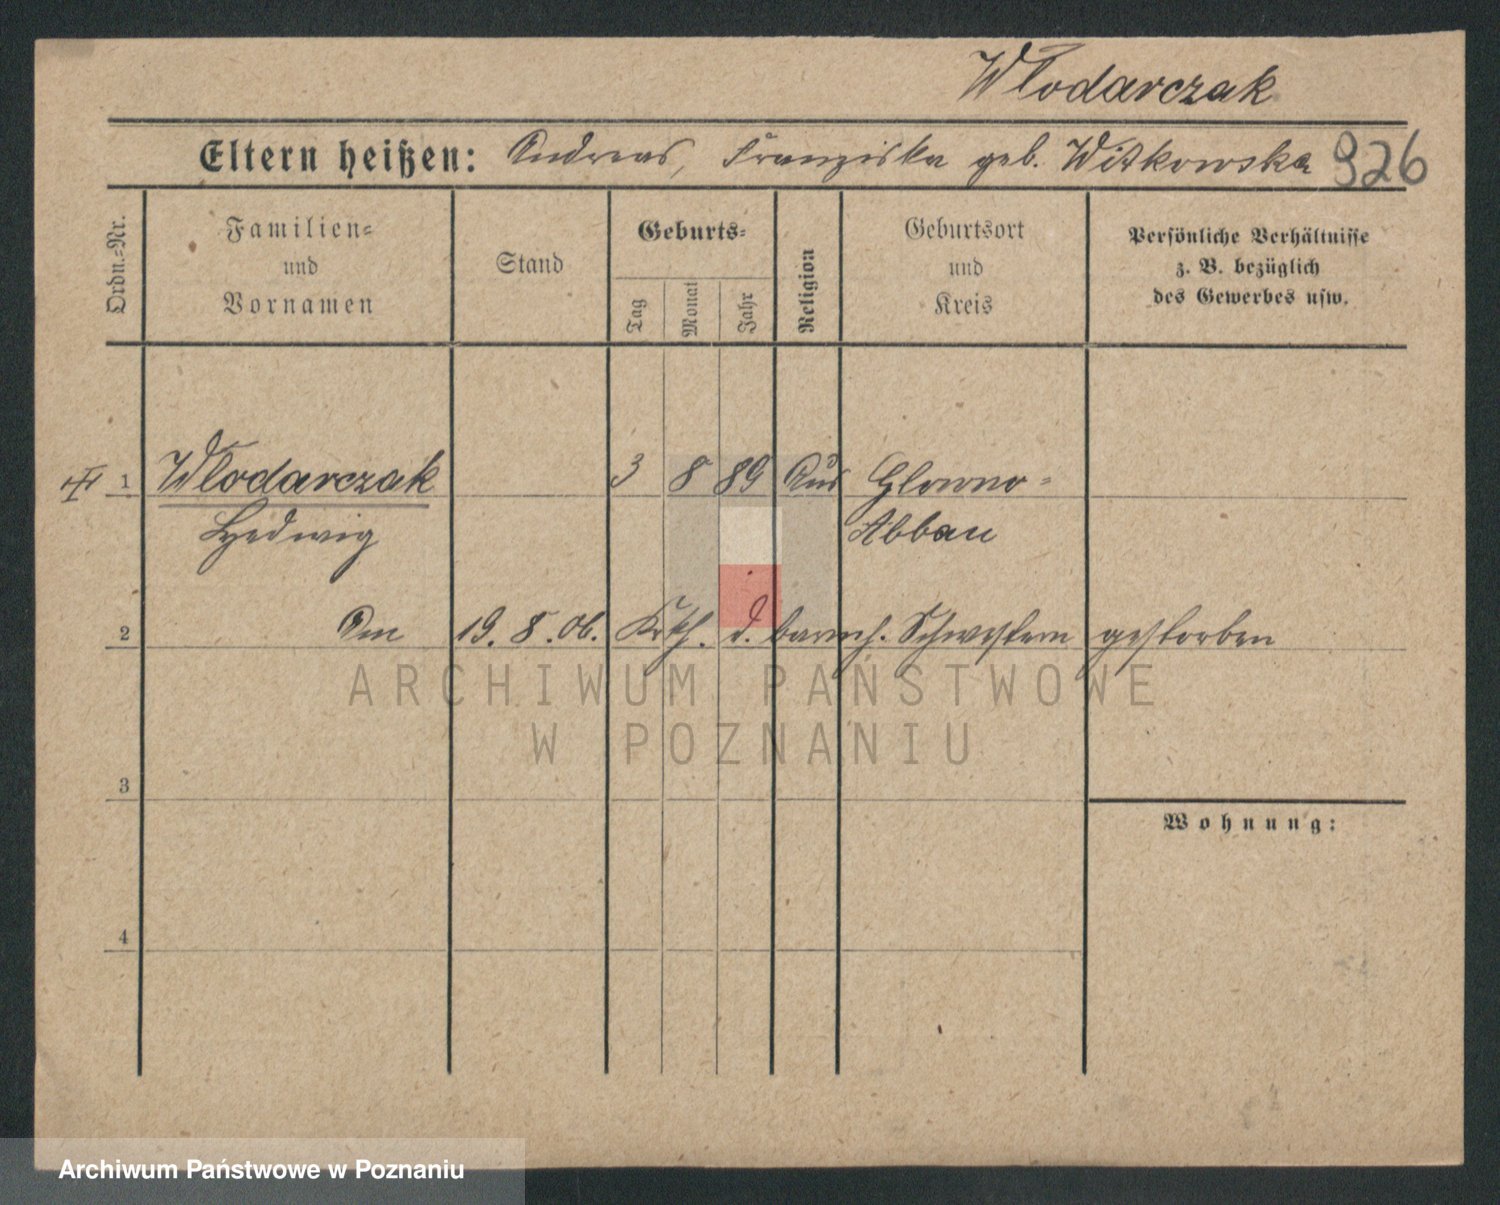 Wlodarczak
Eltern heißen: Andreas, Franziska geb. Witkowska 926
Ordn.-Nr.
Familien-
und
Vornamen
Stand
Geburts-
Tag
Monat
Jahr
Religion
Geburtsort
und
Kreis
Persönliche Verhältnisse
z. B. bezüglich
des Gewerbes usw.
1 Wlodarczak 3 8 89 Glowno-
Hedwig Abbau
2 Am 19. 8. 06. Krkh. d. barmh. Schwestern gestorben
ARCHIWUM PAŃSTWOWE
W POZNANIU
3
Wohnung:
4
Archiwum Państwowe w Poznaniu